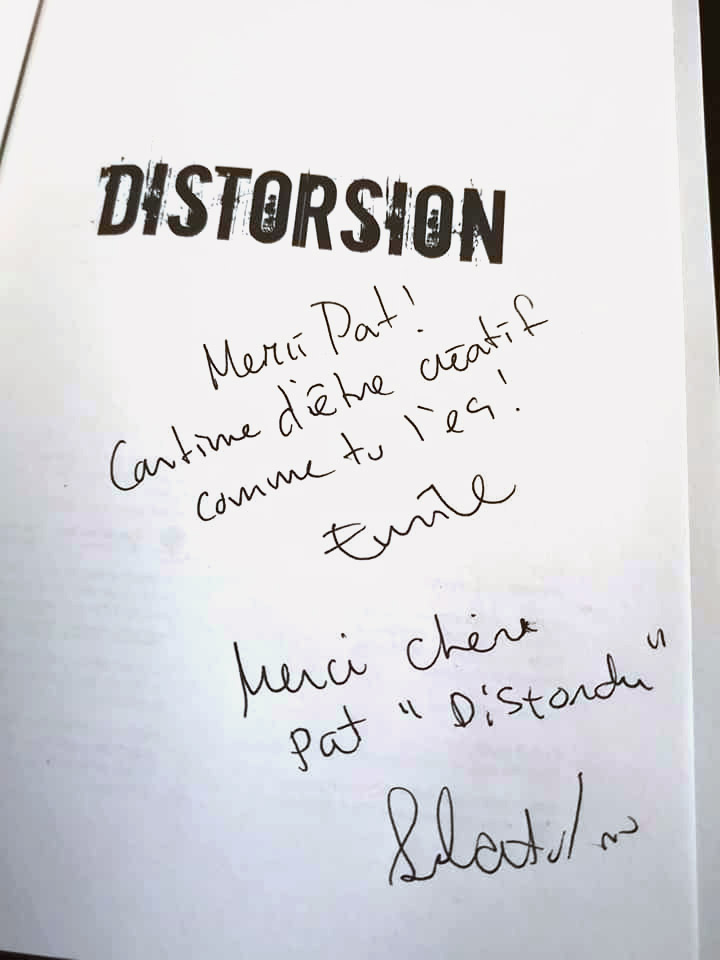 DISTORSION
Merci Pat!
Continue d'être créatif
comme tu l'es!
Emile
Merci chère
Pat "Distordu"